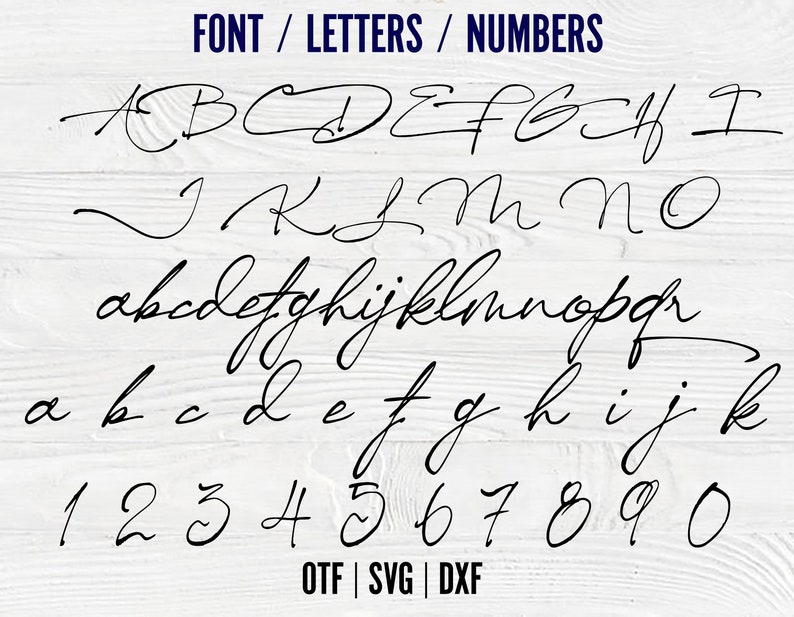 FONT / LETTERS / NUMBERS
A B C D E F G H I
J K L M N O
abcdefghijklmnopqr
a b c d e f g h i j k
1 2 3 4 5 6 7 8 9 0
OTF | SVG | DXF